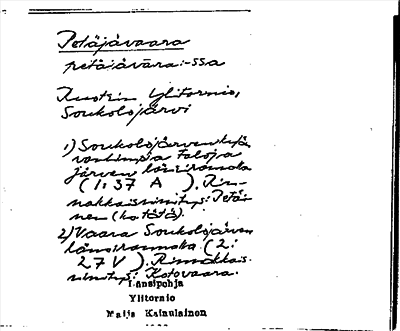 Petäjävaara
petäjävāra: -ssa
Ylitornio,
Soukolojärvi
1) Soukolojärven kylän
vanhimpia taloja
järven länsirannalla
(1: 37 A ). Rin-
nakkaisnimitys: Petäi-
nen (ks. tätä).
2) Vaara Soukolojärven
länsirannalla (2:
27 V ). Rinnakkais-
nimitys: Kotovaara.
Länsipohja
Ylitornio
Maija Kainulainen